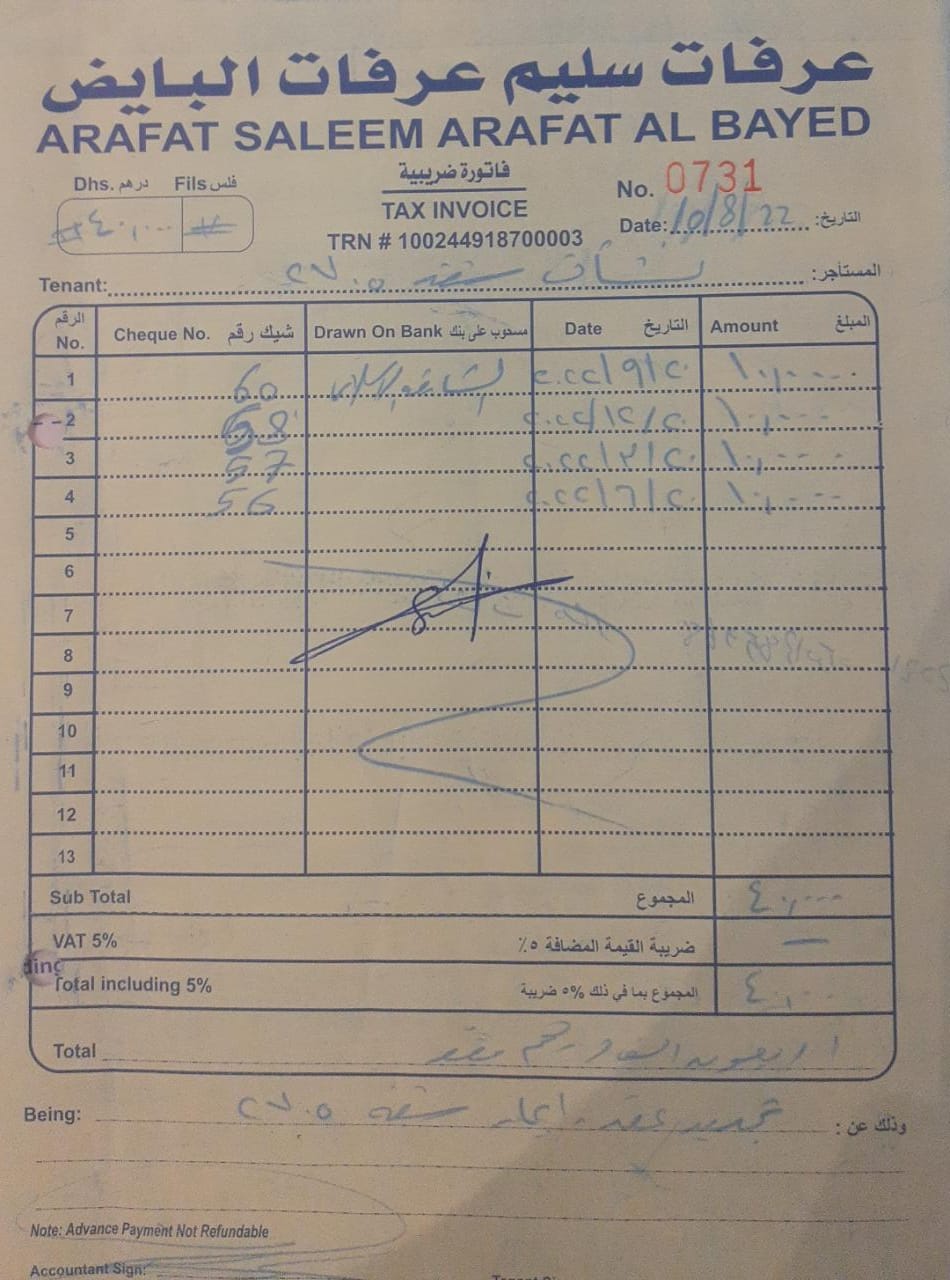 عرفات سليم عرفات البايض
ARAFAT SALEEM ARAFAT AL BAYED
Dhs. درهم Fils فلس
٤٠,٠٠٠
فاتورة ضريبية
TAX INVOICE
TRN # 100244918700003
No. 0731
Date: 10/8/22 التاريخ:
Tenant: شقة المستأجر:
الرقم No. Cheque No. شيك رقم Drawn On Bank مسحوب على بنك Date التاريخ Amount المبلغ
1 60 ١٠,٠٠٠
2 58 ١٠,٠٠٠
3 57 ١٠,٠٠٠
4 56 ١٠,٠٠٠
5
6
7
8
9
10
11
12
13
Sub Total المجموع ٤٠,٠٠٠
VAT 5% ضريبة القيمة المضافة ٥٪ —
Total including 5% المجموع بما في ذلك ٥% ضريبة ٤٠,٠٠٠
Total درهم فقط
Being: تجديد عقد شقة وذلك عن:
Note: Advance Payment Not Refundable
Accountant Sign: